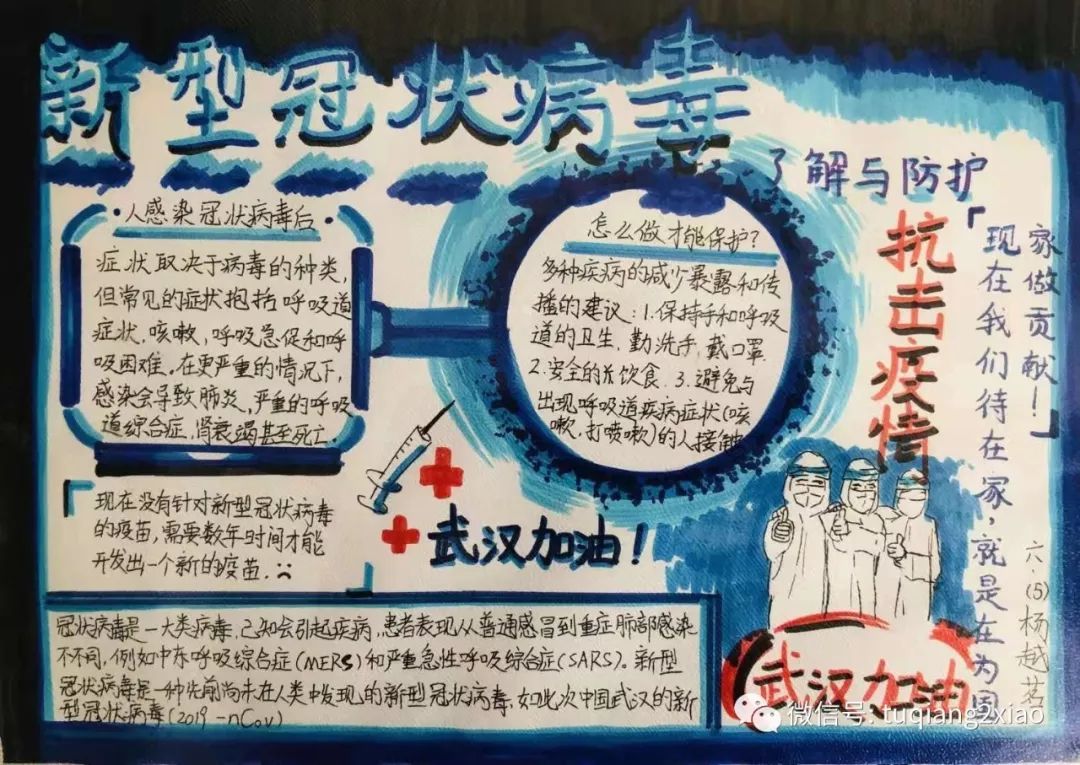 新型冠状病毒
了解与防护
·人感染冠状病毒后·
症状取决于病毒的种类，
但常见的症状抱括呼吸道
症状，咳嗽，呼吸急促和呼
吸困难。在更严重的情况下，
感染会导致肺炎，严重的呼吸
道综合症，肾衰竭甚至死亡.
怎么做才能保护？
多种疾病的减少暴露和传
播的建议：1.保持手和呼吸
道的卫生，勤洗手，戴口罩
2.安全的饮食.3.避免与
出现呼吸道疾病症状(咳
嗽，打喷嚏)的人接触
抗击疫情
「现在我们待在家，就是在为国
家做贡献！」
现在没有针对新型冠状病毒
的疫苗，需要数年时间才能
开发出一个新的疫苗.
武汉加油！
六(5)杨越茗
冠状病毒是一大类病毒，已知会引起疾病，患者表现从普通感冒到重症肺部感染
不不同，例如中东呼吸综合症(MERS)和严重急性呼吸综合症(SARS)。新型
冠状病毒是一种先前尚未在人类中发现的新型冠状病毒，如此次中国武汉的新
型冠状病毒(2019-nCoV)
武汉加油
微信号: tuqiang2xiao